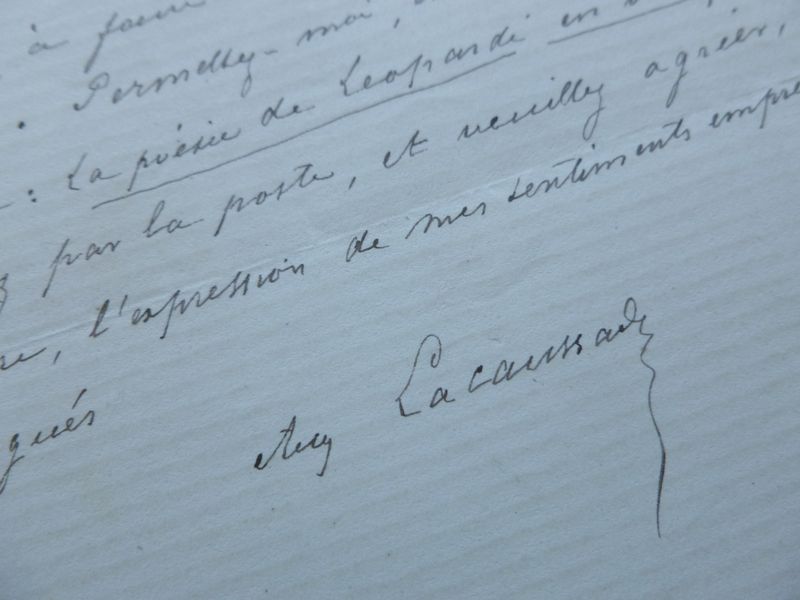 à faire
. Permettez-moi,
: La poésie de Leopardi en
par la poste, et veuillez agréer,
, l'expression de mes sentiments empre
gués
Aug Lacaussade